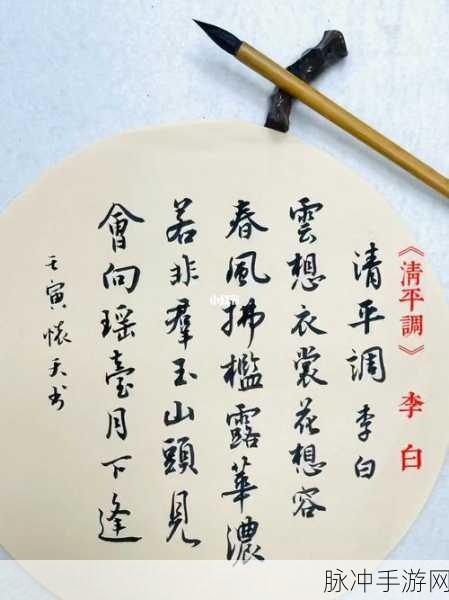 《清平調》 李白
清平調 李白
雲想衣裳花想容
春風拂檻露華濃
若非羣玉山頭見
會向瑤臺月下逢
壬寅懷天书
小红书
脉冲手游网